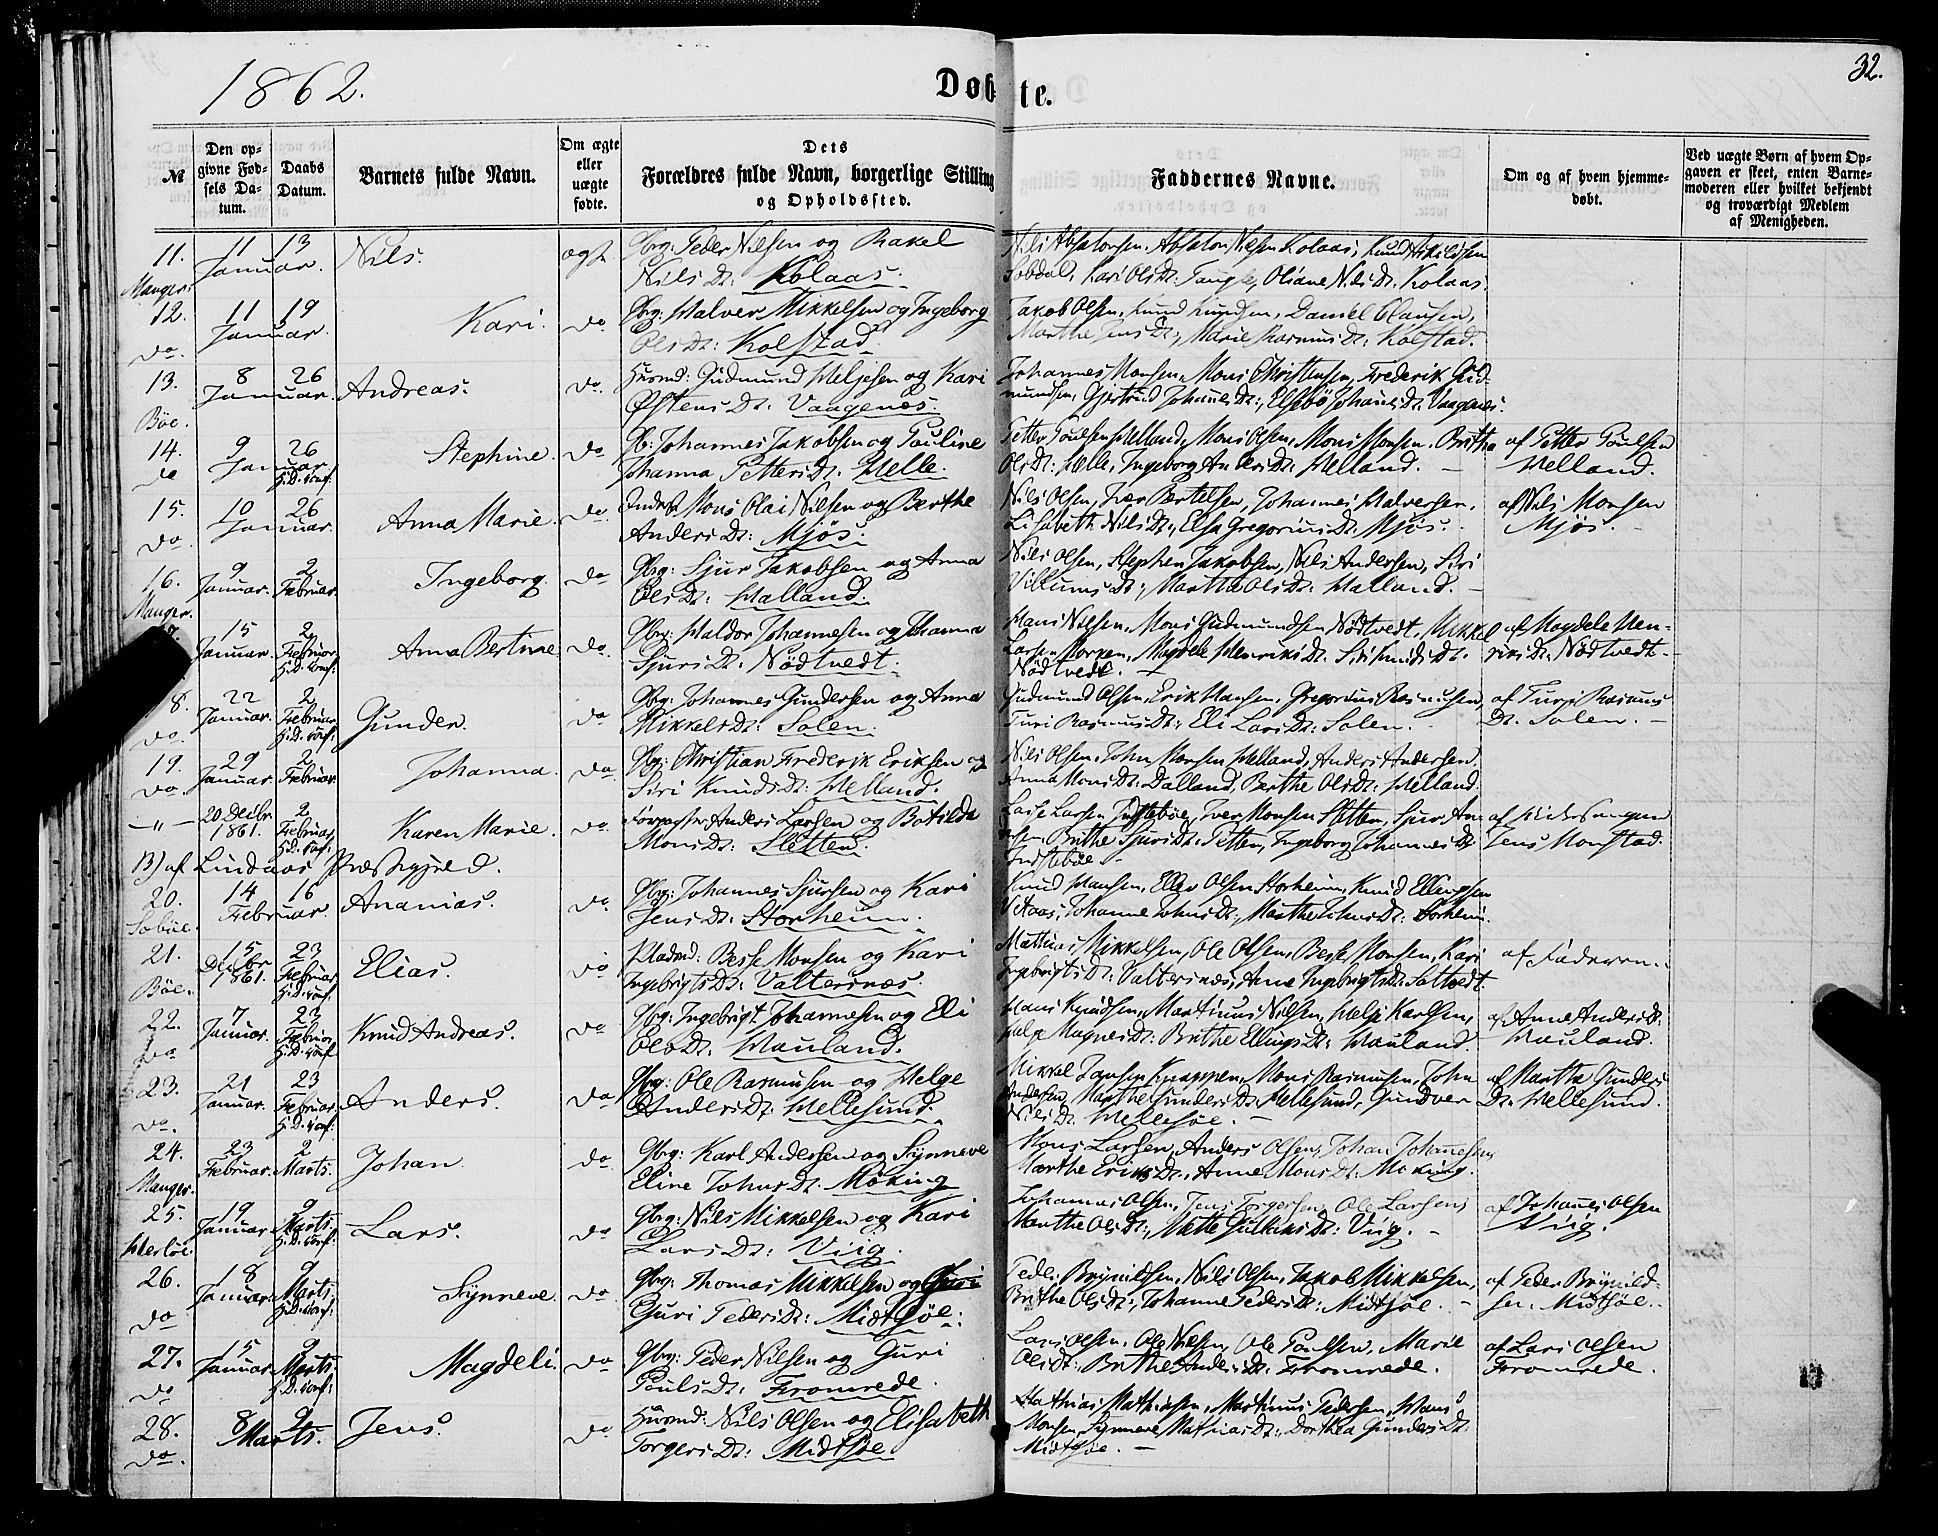 1862.
Døbte.
32.
№
Den opgivne Fødsels Datum.
Daabs Datum.
Barnets fulde Navn.
Om ægte eller uægte fødte.
Dets Forældres fulde Navn, borgerlige Stilling og Opholdssted.
Faddernes Navne.
Om og af hvem hjemmedøbt.
Ved uægte Børn af hvem Opgaven er skeet, enten Barnemoderen eller hvilket bekjendt og troværdigt Medlem af Menigheden.
11. Manger. 11 Januar. 13 Nils. ægt.
Gbrg: Peder Nilsen og Rakel
Nils Dt: Kolaas.
Nils Absalonsen, Absalon Nilsen Kolaas, Knud
Kari Ols Dt: Tangle, Oliane Nils Dt. Kolaas.
12. do. 11 Januar. 19 Kari. do
Gbrg: Halver Mikkelsen og Ingeborg
Ols Dt: Kolstad.
Jakob Olsen, Knud Knudsen, Daniel Clausen,
Marthe Jens Dt:, Marie Rasmus Dt: Kolstad.
13. Böe. 8 Januar. 26 Andreas. do.
Husmd: Gudmund Heljesen og Kari
Østens Dt: Vaagenes.
Johannes Monsen, Mons Christensen, Frederik Gud-
mundsen, Gjertrud Johannes Dt:, Elsebø Johannes Dt: Vaagenes.
14. do 9 Januar 26 H.D. conf. Stephine. do
Gb: Johannes Jakobsen og Pauline
Johanna Petters Dt: Helle.
Petter Poulsen Helland, Mons Olsen, Mons Monsen, Brithe
Ols Dt: Helle, Ingeborg Anders Dt: Helland. —
af Petter Poulsen
Helland.
15. do. 10 Januar. 26 Anna Marie. do
Mons Olai Nilsen og Berthe
Anders Dt: Mjøs.
Nils Olsen, Iver Bertelsen, Johannes Halversen,
Lisabeth Nils Dt:, Elsa Gregorius Dt: Mjøs. -
af Nils Monsen
Mjøs.
16. Manger. 9 Januar. 2 Februar. Ingeborg. do
Gbrg: Sjur Jakobsen og Anna
Ols Dt: Halland.
Nils Olsen, Stephen Jakobsen, Nils Andersen, Siri
Villums Dt:, Martha Ols Dt: Halland. -
15 Januar. 2 Februar H.D. conf. Anna Bertine do.
Gbrg: Haldor Johannesen og Johanna
Sjurs Dt: Nödtvedt.
Hans Nilsen, Mons Gudmundsen Nödtvedt, Mikkel
Larsen Morken, Magdele Henriks Dt. Siri Knuds Dt.
Nödtvedt. —
af Magdele Hen-
riks Dt. Nödtvedt. -
8. do. 22 Januar. 2 Februar H.D. conf: Gunder. do
Gbrg: Johannes Gundersen og Anna
Mikkels Dt: Solen.
Gudmund Olsen, Erik Hansen, Gregorius Rasmusen,
Turi Rasmus Dt:, Eli Lars Dt: Solen.
af Turi Rasmus
Dt: Solen. —
19. do. 29 Januar. 2 Februar Johanna. do
Gbrg: Christian Frederik Eriksen og
Siri Knuds Dt: Helland.
Nils Olsen, John Monsen Helland, Anders Andersen,
Anna Mons Dt: Dalland, Berthe Ols Dt: Helland
— " — 20 Decbr 1861. 2 Februar H.D. conf: Karen Marie. do.
Anders Larsen og Botilda
Mons Dt: Sletten.
Lasse Larsen Indstebøe, Iver Monsen Sletten, Sjur An-
Brithe Sjurs Dt: Sletten, Ingeborg Johannes Dt
Indstebøe -
Jens Monstad.
B) af Lindaas Præstegjeld.
20. Sæbøe. 14 Februar. 16 Ananias. do.
Gbrg: Johannes Sjursen og Kari
Jens Dt: Storheim.
Knud Hansen, Elling Olsen Storheim, Knud Ellingsen
Johanne Johns Dt:, Marthe Johns Dt: Storheim.
21. Böe. 15 Decbr 1861. 23 Februar H.D. conf: Elias. do
Pladsmd: Besse Monsen og Kari
Ingebrigts Dt: Valtersnes.
Mathias Mikkelsen, Ole Olsen, Besse Monsen, Kari
Ingebrigts Dt: Valtersnes, Anne Ingebrigts Dt: Soltvedt.
af Faderen.
22. do 7 Januar. 23 Februar H.D. conf Knud Andreas. do
Gbrg: Ingebrigt Johannesen og Eli
Ols Dt: Hauland.
Hans Knudsen, Martinus Nilsen, Helje Karlsen,
Magnes Dt: Brithe Ellings Dt: Hauland.
af Anne Anders Dt:
Hauland.
23. do. 21 Januar. 23 Februar. H.D. conf: Anders. do
Gbrg: Ole Rasmusen og Helge
Anders Dt: Hellesund.
Mikkel Jansen Knappen, Mons Rasmusen, John
Andersen, Marthe Gunders Dt: Hellesund, Gundver
Nils Dt: Hellesøe. —
af Martha Gunders
Dt: Hellesund.
24. Manger. 23 Februar. 2 Marts. Johan. do
Gbrg: Karl Andersen og Synneve
Eline Johns Dt: Møking
Mons Larsen, Anders Olsen, Johan Johannesen,
Marthe Eriks Dt:, Anne Mons Dt. Møking.
25. Herløe. 19 Januar. 9 Marts. H.D. conf: Lars. do
Gbrg: Nils Mikkelsen og Kari
Lars Dt: Viig.
Johannes Olsen, Jens Torgersen, Ole Larsen,
Marthe Ols Dt:, Mette Dt: Viig. -
af Johannes Olsen
Viig.
26. do 18 Januar. 9 Marts. H.D. conf: Synneve. do
Gbrg: Thomas Mikkelsen og Guri
Guri Peders Dt: Midtsøe.
Peder Brynildsen, Nils Olsen, Jakob Mikkelsen,
Brithe Ols Dt:, Johanne Peders Dt: Midtsøe. -
af Peder Brynild-
sen Midtsøe.
27. do 15 Januar. 9 Marts. H.D. conf: Magdeli. do
Gbrg: Peder Nilsen og Guri
Pouls Dt: Fromrede.
Lars Olsen, Ole Nilsen, Ole Poulsen, Marie
Ols Dt:, Brithe Anders Dt: Fromrede.
af Lars Olsen
Fromrede.
28. do. 8 Marts. 9 Jens. do
Husmd: Nils Olsen og Elisabeth
Torgers Dt: Midtsøe
Mathias Mathiasen, Martinus Pedersen, Hans
Monsen, Synneve Mathias Dt:, Dorthea Gunders Dt:
Midtsøe. —